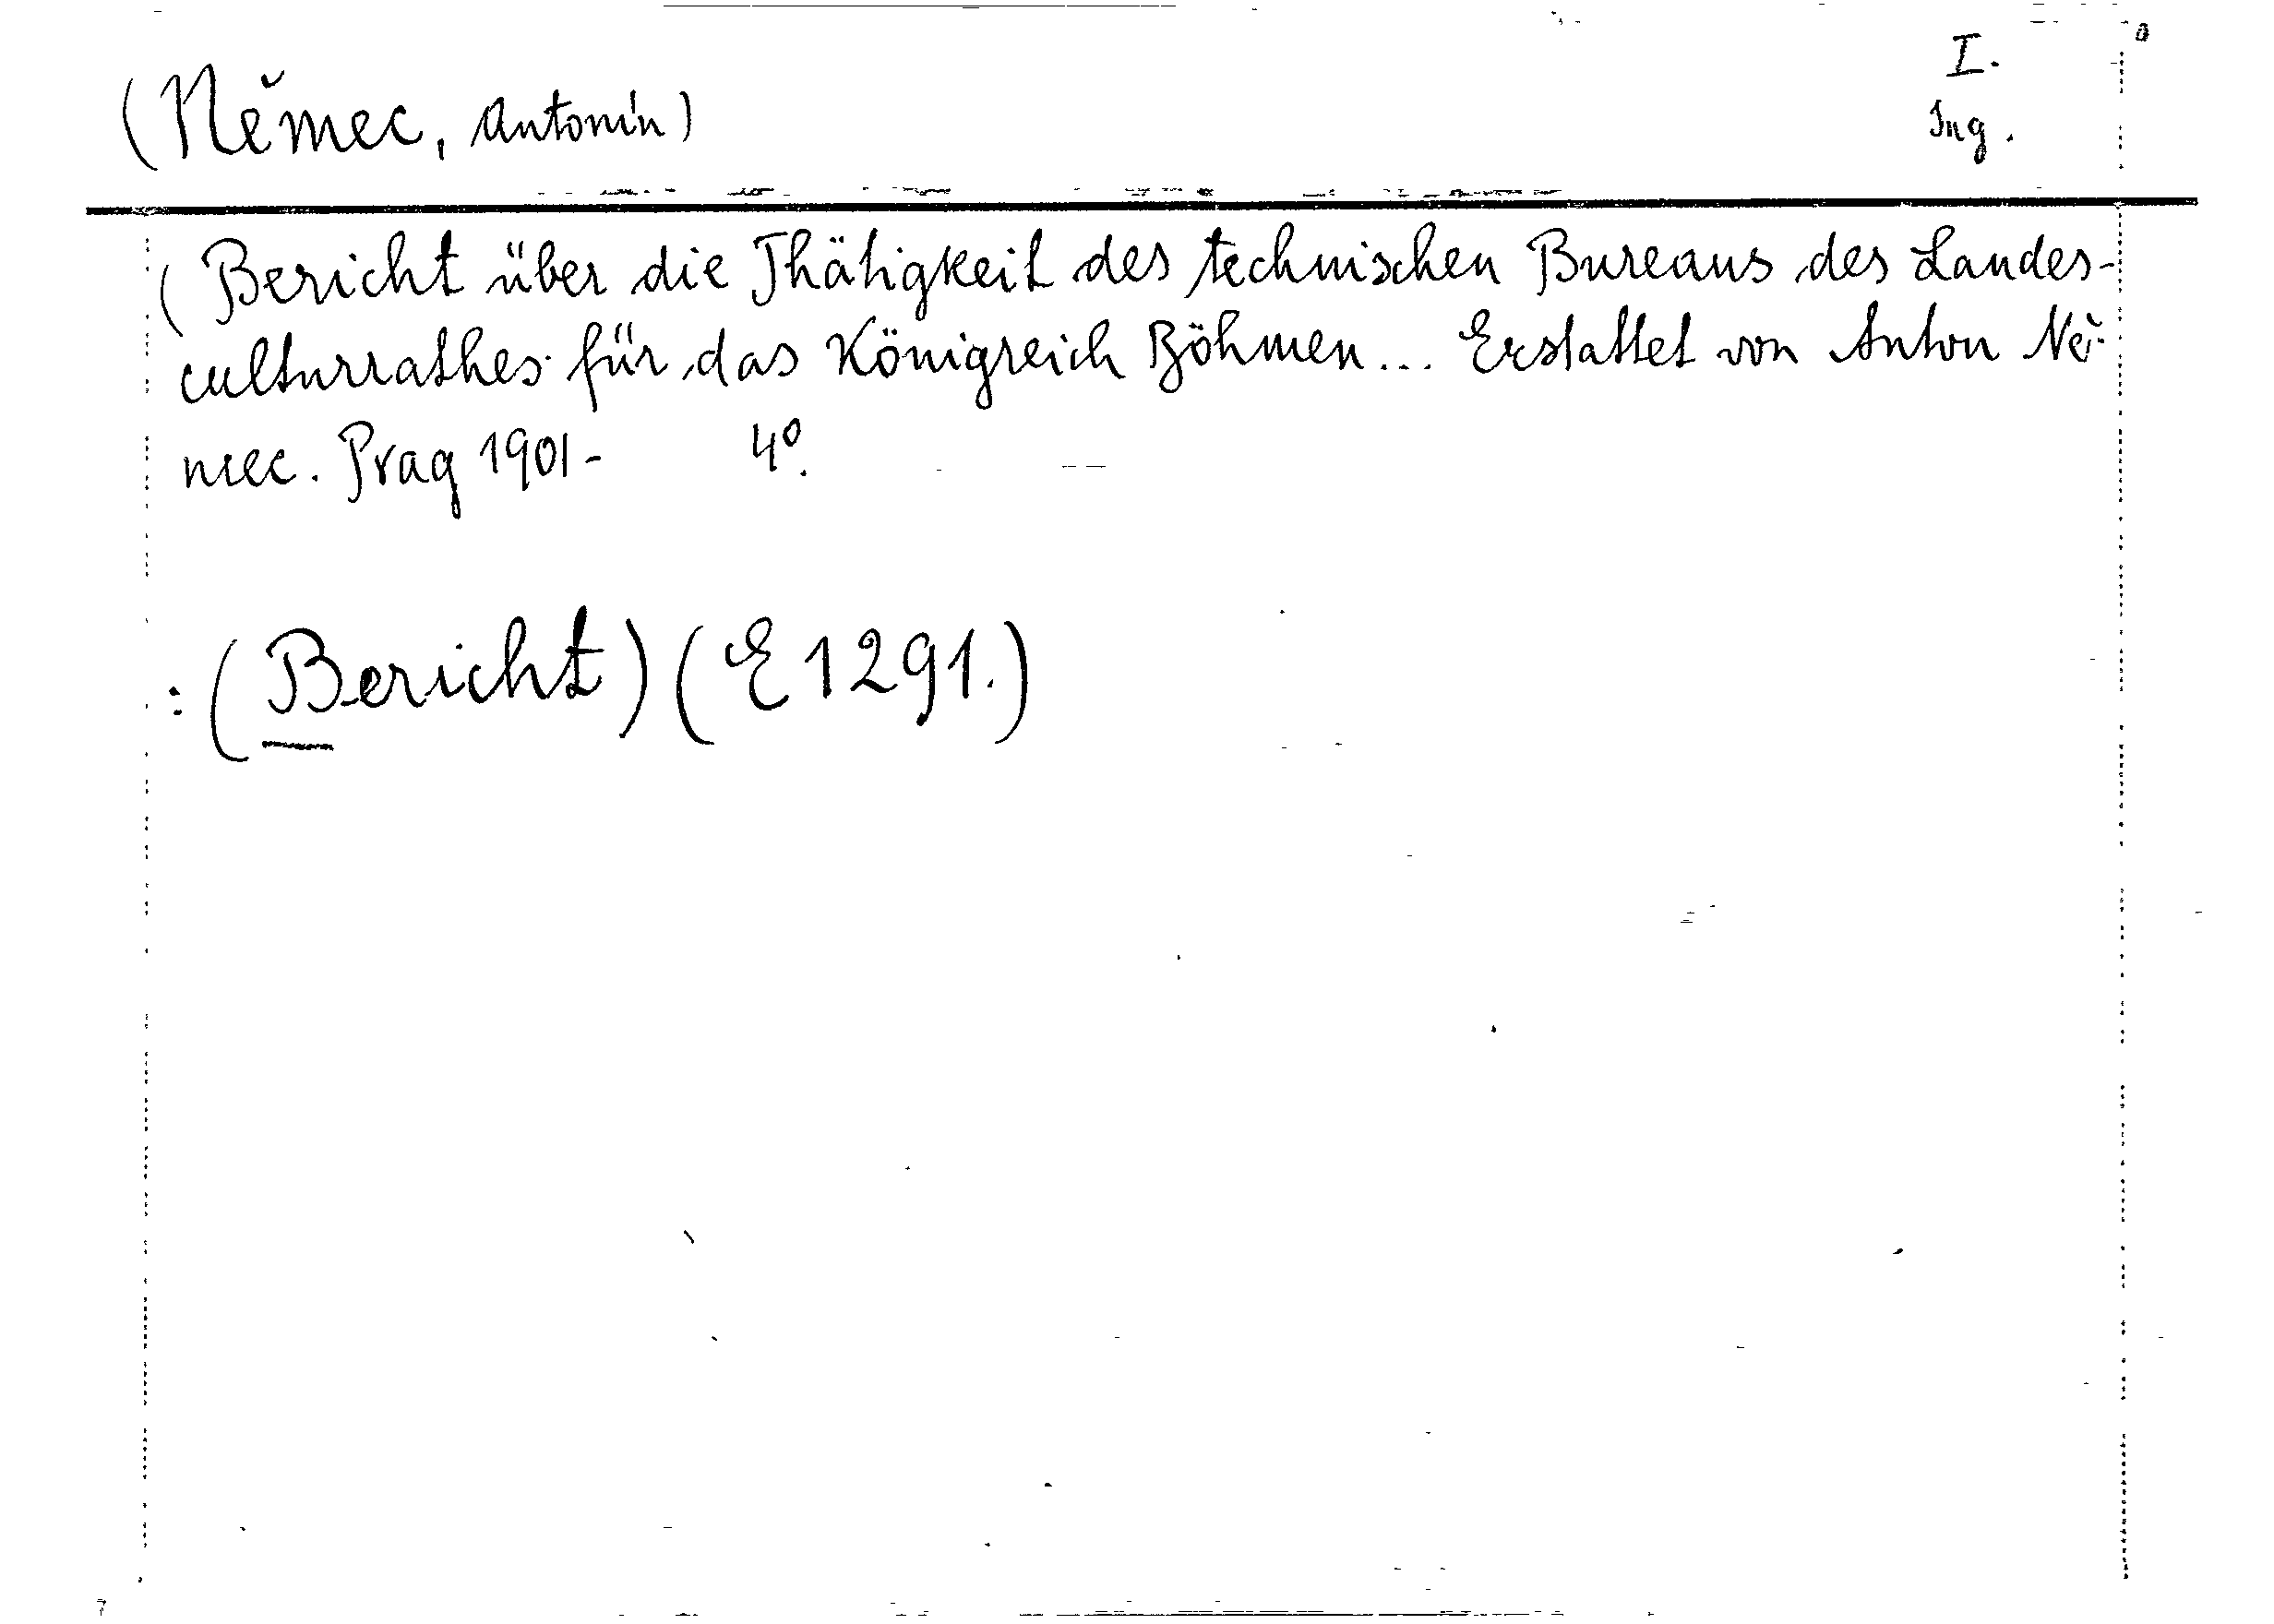 (Němec, Antonín)
I.
Ing.
(Bericht über die Thätigkeit des technischen Bureaus des Landes-
culturrathes für das Königreich Böhmen... Erstattet von Anton Ně-
mec. Prag 1901- 4º.
:(Bericht)(E1291.)